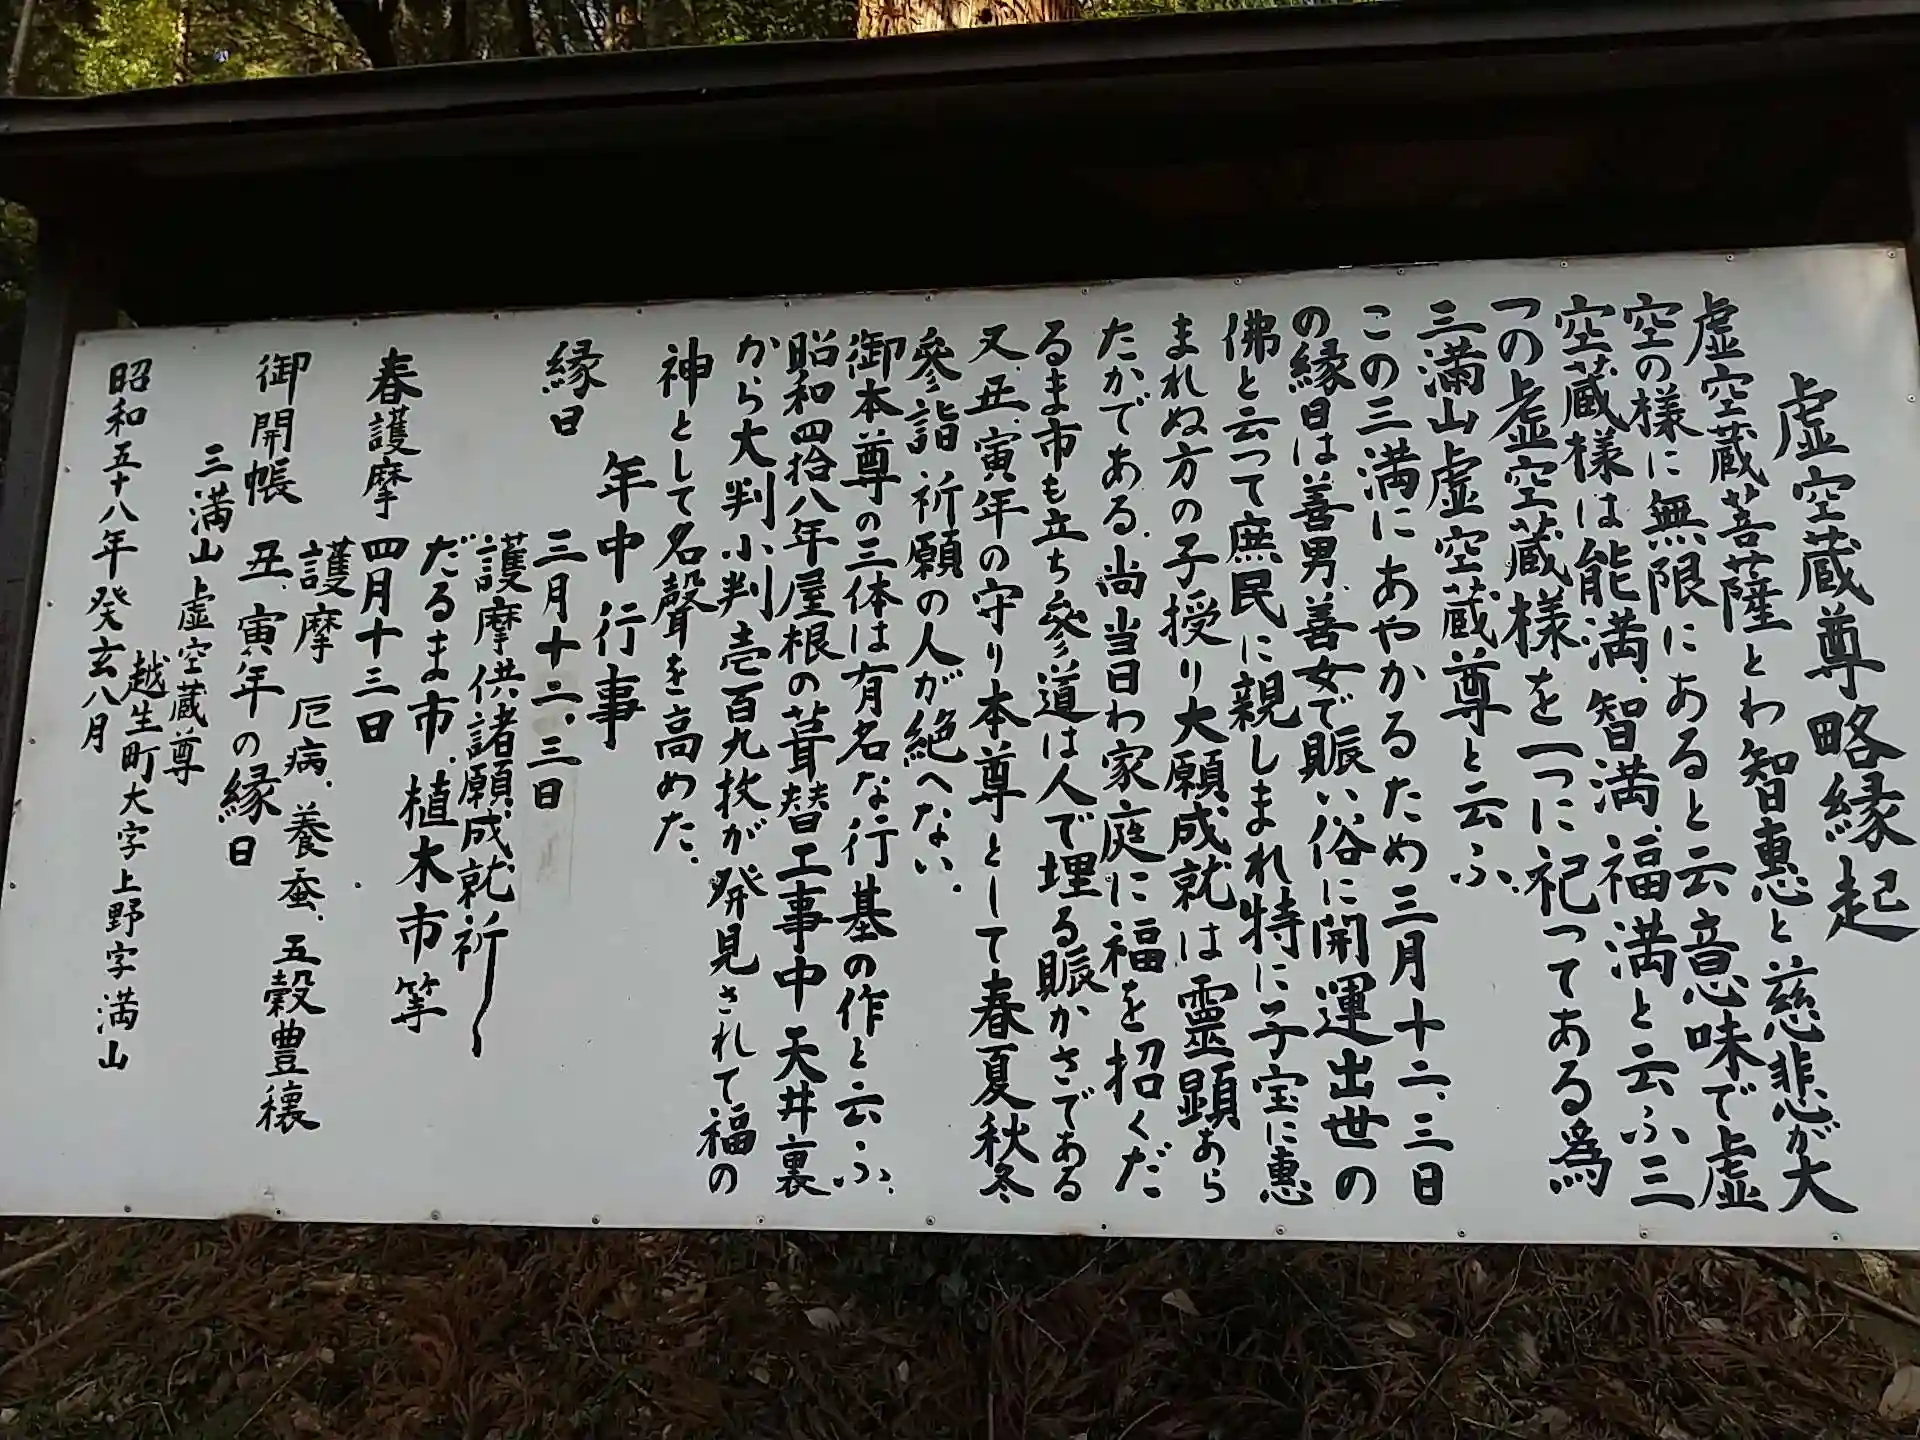 虚空蔵尊略縁起
虚空蔵菩薩とわ智惠と慈悲が大
空の様に無限にあると云意味で虚
空蔵様は能満、智満、福満と云ふ三
つの虚空蔵様を一つに祀ってある爲
三満山虚空蔵尊と云ふ、
この三満にあやかるため三月十二、三日
の縁日は善男、善女で賑い俗に開運出世の
佛と云って庶民に親しまれ特に子宝に惠
まれぬ方の子授り大願成就は靈顕あら
たかである、尚当日わ家庭に福を招くだ
るま市も立ち參道は人で埋る賑かさである
又、丑、寅年の守り本尊として春夏秋冬
參詣祈願の人が絶へない、
御本尊の三体は有名な行基の作と云ふ、
昭和四拾八年屋根の葺替工事中天井裏
から大判小判壱百九枚が発見されて福の
神として名聲を高めた、
年中行事
縁日 三月十二、三日
護摩供諸願成就祈〜
だるま市、植木市等
春護摩 四月十三日
護摩 厄病、養蚕、五穀豊穰
御開帳 丑、寅年の縁日
三満山虚空蔵尊
越生町大字上野字満山
昭和五十八年癸亥八月